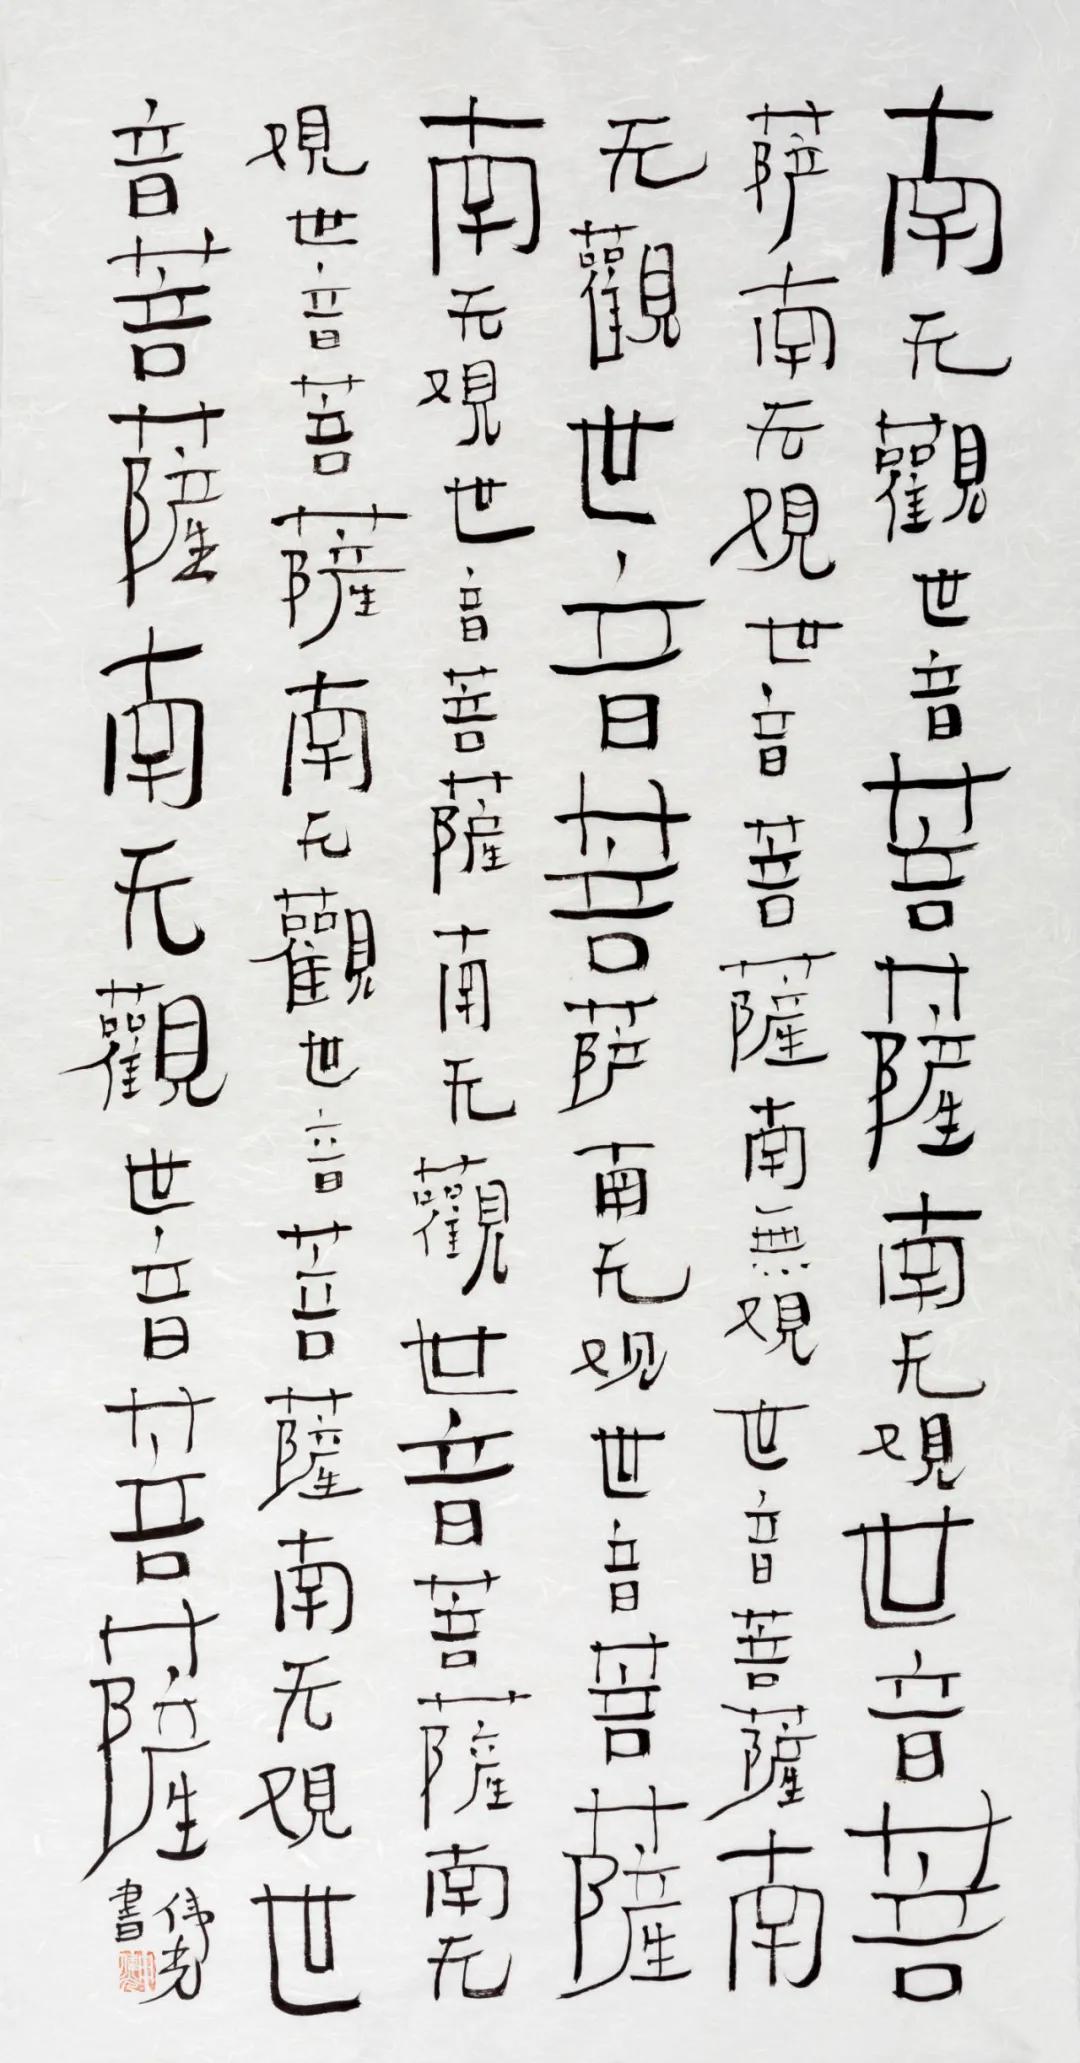 南无觀世音菩薩南无覌世音菩
萨南无覌世音菩薩南無覌世音菩薩南
无觀世音菩萨南无观世音菩薩
南无覌世音菩薩南无觀世音菩薩南无
覌世音菩薩南无觀世音菩薩南无覌世
音菩薩南无觀世音菩薩
伟光
書